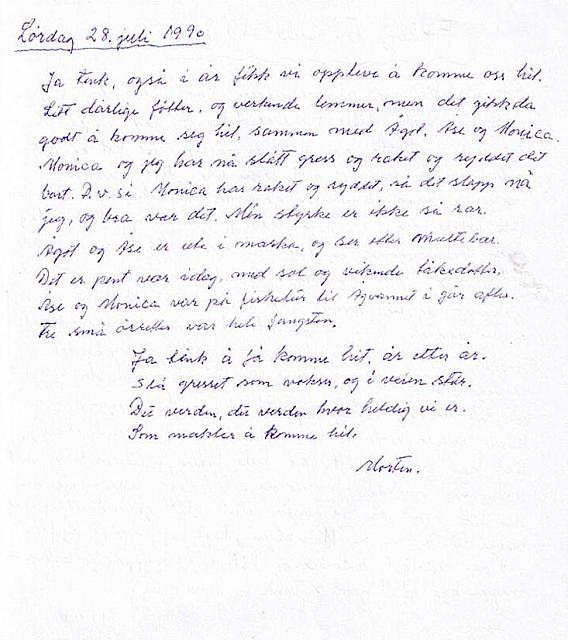 Lørdag 28. juli 1990
Ja tenk, også i år fikk vi oppleve å komme oss hit.
Litt dårlige føtter, og verkende lemmer, men det gikk da
godt å komme seg hit, sammen med Ågot, Åse og Monica.
Monica og jeg har nå slått gress og raket og ryddet det
bort. D.v.si Monica har raket og ryddet, så det slapp nå
jeg, og bra var det. Min styrke er ikke så rar.
Ågot og Åse er ute i marka, og ser etter multebær.
Det er pent vær idag, med sol og vikende tåkedotter.
Åse og Monica var på fisketur til i går aftes.
Tre små ørreter var hele fangsten.
Ja tenk å få komme hit, år etter år.
Slå gresset som vokser, og i veien står.
Du verden, du verden hvor heldig vi er.
Som makter å komme hit.
Morten.